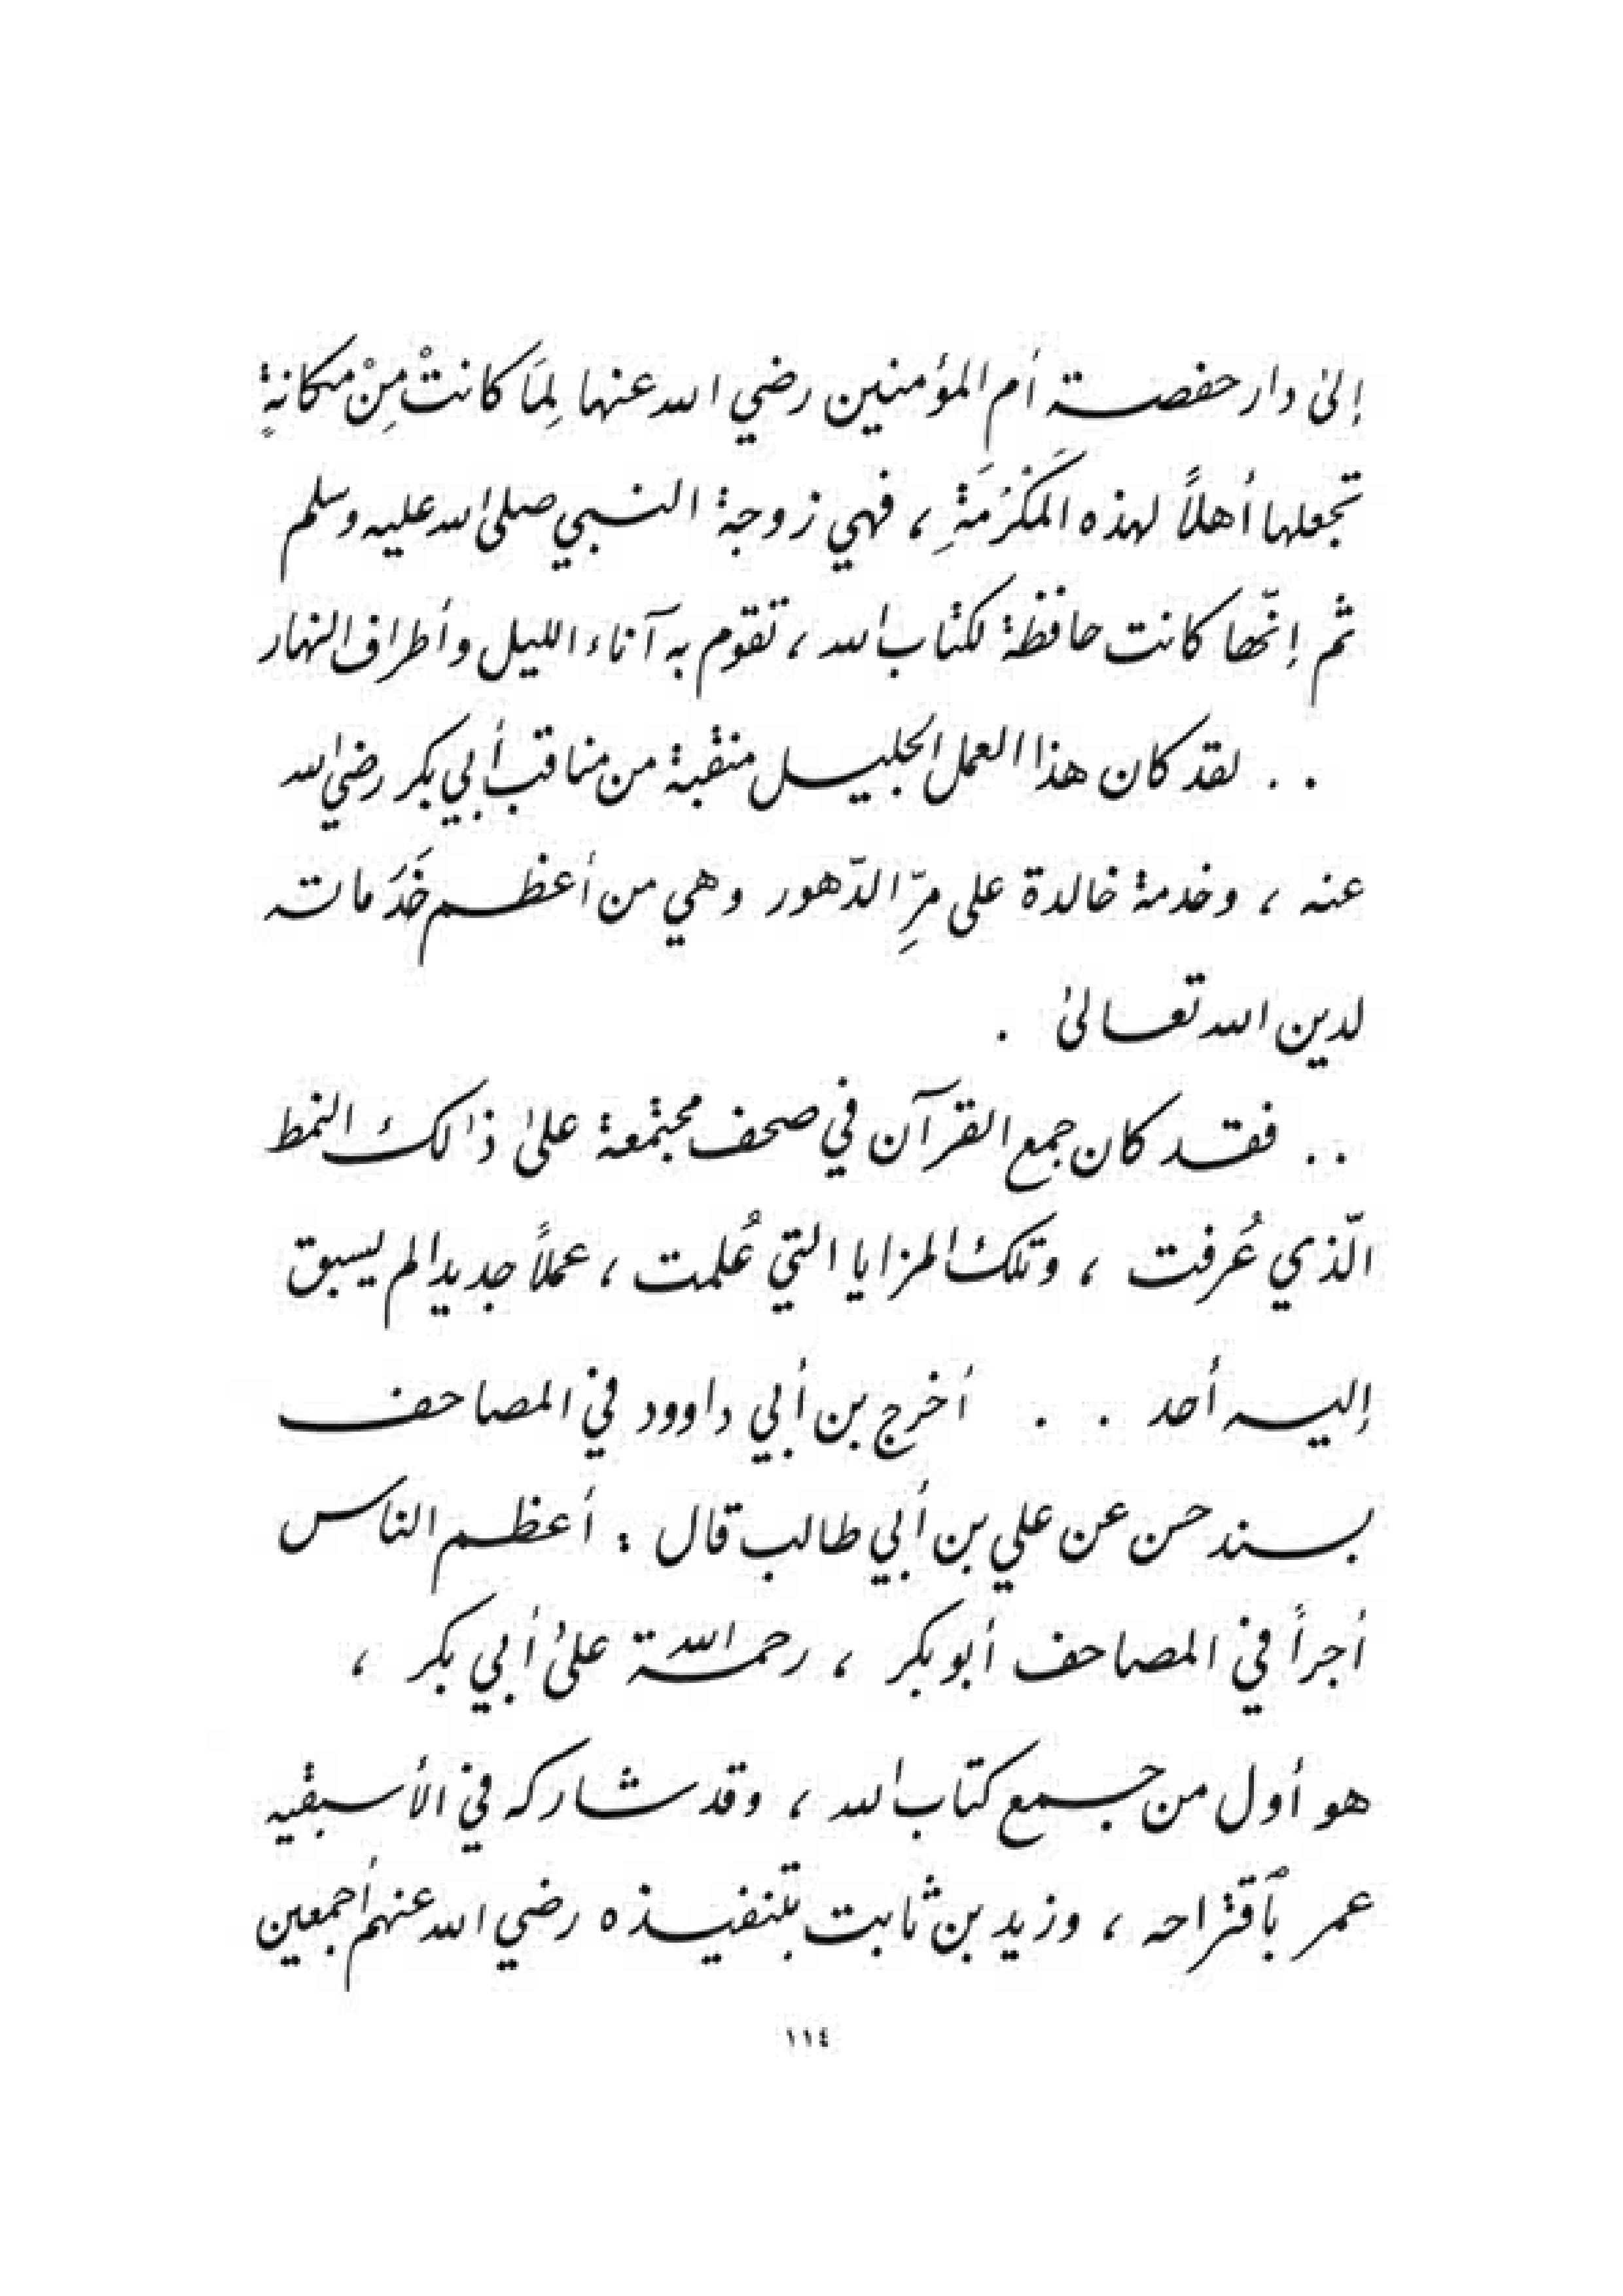 إلىٰ دار حفصة أم المؤمنين رضي الله عنها لِمَا كانتْ مِنْ مكانةٍ
تجعلها أهلاً لهذه المَكْرُمَةِ ، فهي زوجة النبي صلىٰ الله عليه وسلم
ثم إنّها كانت حافظة لكتاب الله ، تقوم به آناء الليل وأطراف النهار
. . لقد كان هذا العمل الجليل منقبة من مناقب أبي بكر رضي الله
عنه ، وخدمة خالدة على مرِّ الدّهور وهي من أعظم خَدَمَاته
لدين الله تعالىٰ .
. . فقد كان جمع القرآن في صحف مجتمعة علىٰ ذٰلك النمط
الّذي عُرفت ، وتلك المزايا التي عُلمت ، عملاً جديدا لم يسبق
إليه أحد . . أخرج بن أبي داوود في المصاحف
بسند حسن عن علي بن أبي طالب قال : أعظم الناس
أجراً في المصاحف أبو بكر ، رحمة الله علىٰ أبي بكر ،
هو أول من جمع كتاب الله ، وقد شاركه في الأسبقيه
عمر بٱقتراحه ، وزيد بن ثابت بتنفيذه رضي الله عنهم أجمعين
١١٤